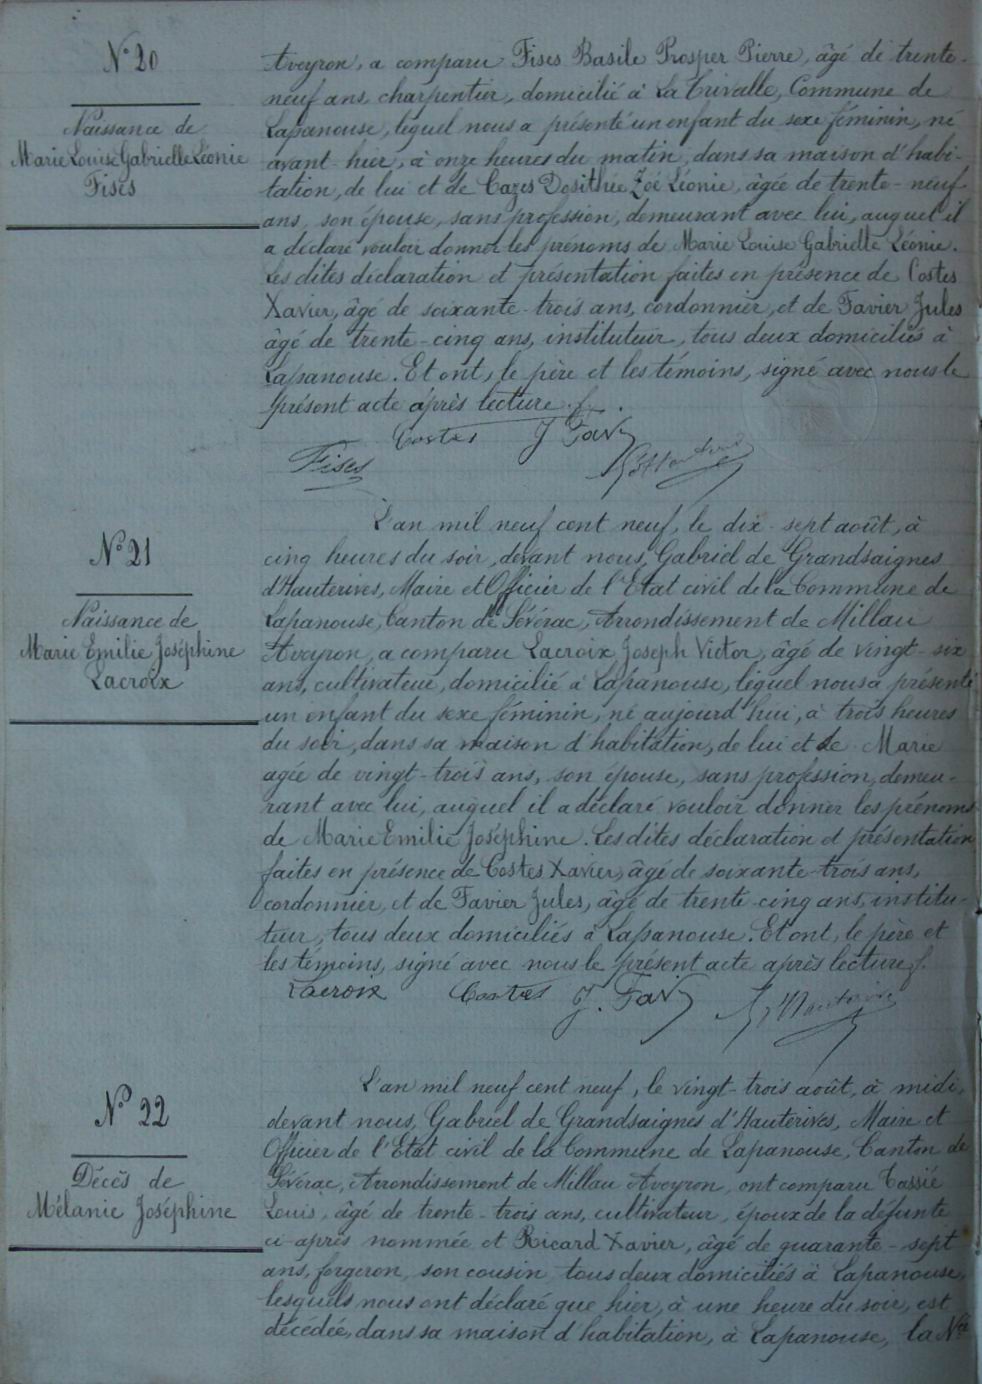 N° 20
Naissance de
Marie Louise Gabrielle Léonie
Fises
Aveyron, a comparu Fises Basile Prosper Pierre, âgé de trente-
neuf ans, charpentier, domicilié à La Trivalle, Commune de
Lapanouse, lequel nous a présenté un enfant du sexe féminin, né
avant-hier, à onze heures du matin, dans sa maison d'habi-
tation, de lui et de Cazes Dosithée Zoé Léonie, âgée de trente-neuf
ans, son épouse, sans profession, demeurant avec lui, auquel il
a déclaré vouloir donner les prénoms de Marie Louise Gabrielle Léonie.
Les dites déclaration et présentation faites en présence de Costes
Xavier, âgé de soixante-trois ans, cordonnier, et de Favier Jules
âgé de trente-cinq ans, instituteur, tous deux domiciliés à
Lapanouse. Et ont, le père et les témoins, signé avec nous le
présent acte après lecture.
Costes J. Fav
Fises
N° 21
Naissance de
Marie Emilie Joséphine
Lacroix
L'an mil neuf cent neuf, le dix-sept août, à
cinq heures du soir, devant nous, Gabriel de Grandsaignes
d'Hauterives, Maire et Officier de l'Etat civil de la Commune de
Lapanouse, Canton de Séverac, Arrondissement de Millau
Aveyron, a comparu Lacroix Joseph Victor, âgé de vingt-six
ans, cultivateur, domicilié à Lapanouse, lequel nous a présenté
un enfant du sexe féminin, né aujourd'hui, à trois heures
du soir, dans sa maison d'habitation, de lui et de Marie
agée de vingt-trois ans, son épouse, sans profession, demeu-
rant avec lui, auquel il a déclaré vouloir donner les prénoms
de Marie Emilie Joséphine. Les dites déclaration et présentation
faites en présence de Costes Xavier, âgé de soixante-trois ans,
cordonnier, et de Favier Jules, âgé de trente-cinq ans, institu-
teur, tous deux domiciliés à Lapanouse. Et ont, le père et
les témoins, signé avec nous le présent acte après lecture.
Lacroix Costes J. Fav
N° 22
Décès de
Mélanie Joséphine
L'an mil neuf cent neuf, le vingt-trois août, à midi,
devant nous, Gabriel de Grandsaignes d'Hauterives, Maire et
Officier de l'Etat civil de la Commune de Lapanouse, Canton de
Séverac, Arrondissement de Millau Aveyron, ont comparu Cassié
Louis, âgé de trente-trois ans, cultivateur, époux de la défunte
ci-après nommée et Ricard Xavier, âgé de quarante-sept
ans, forgeron, son cousin, tous deux domiciliés à Lapanouse,
lesquels nous ont déclaré que hier, à une heure du soir, est
décédée, dans sa maison d'habitation, à Lapanouse, la N^ée